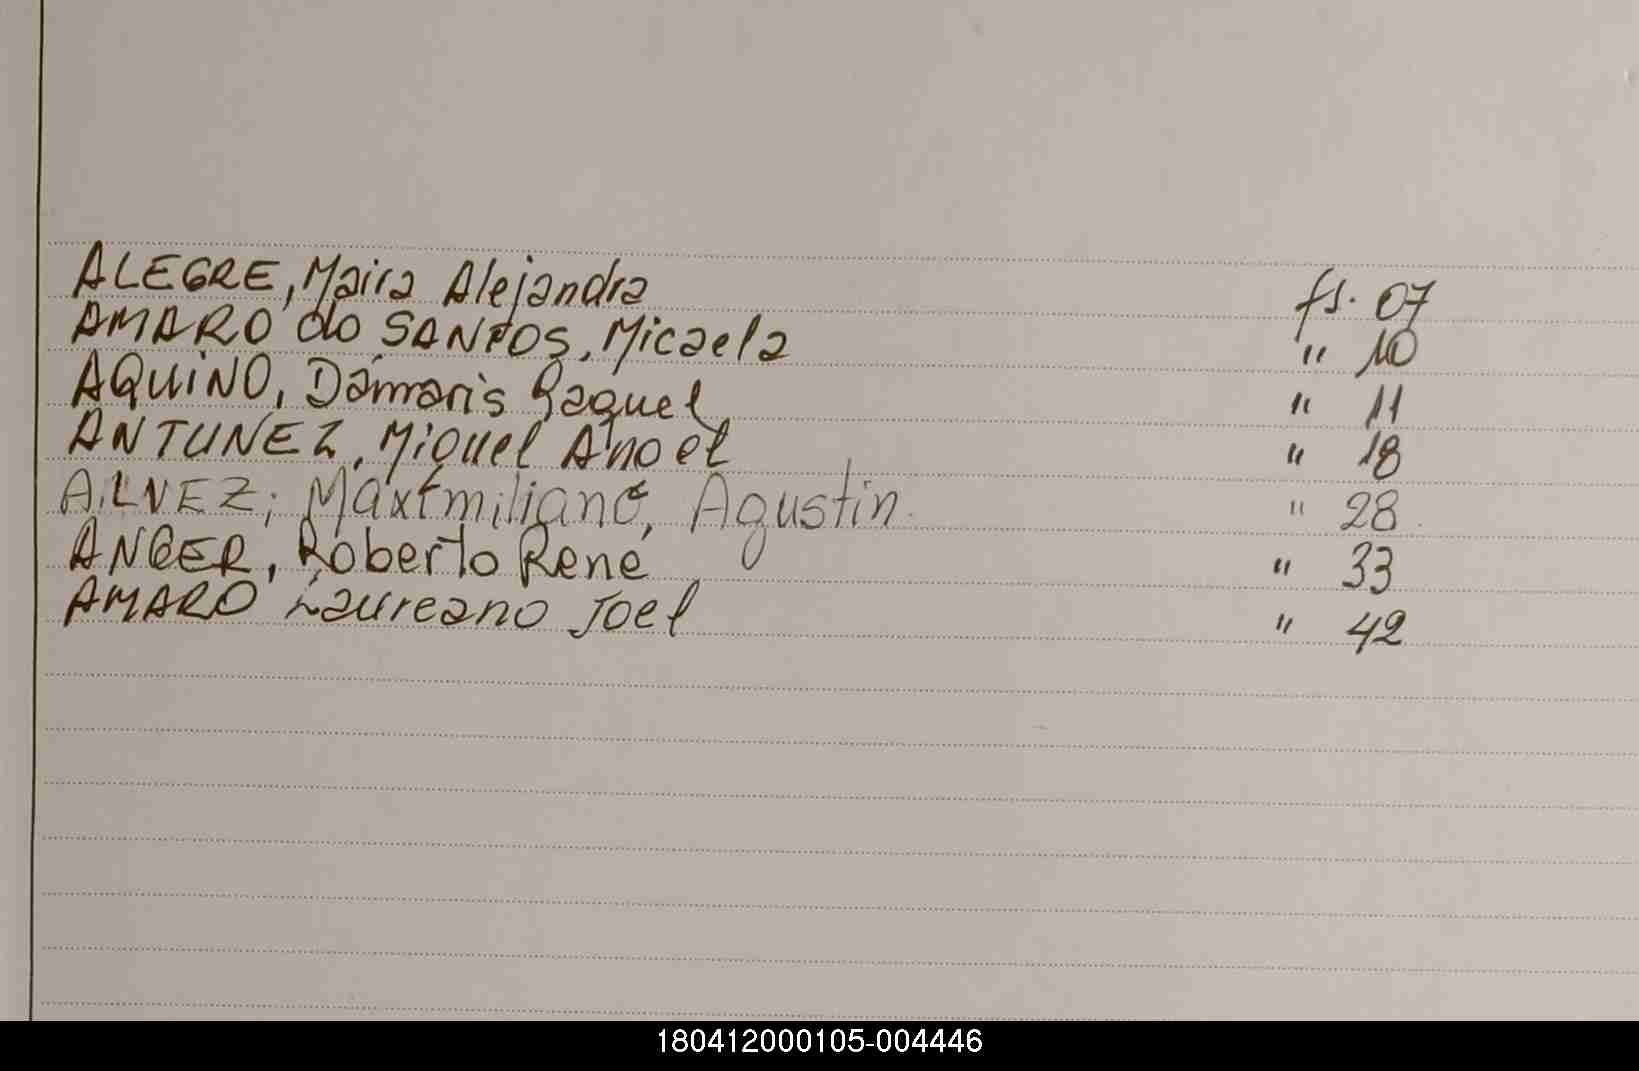 ALEGRE, Maira Alejandra fs. 07
AMARO do SANTOS, Micaela " 10
AQUINO, Dámaris Raquel " 11
ANTUNEZ, Miguel Angel " 18
ALVEZ; Maximiliano, Agustin. " 28
ANGER, Roberto René " 33
AMARO Laureano Joel " 42
180412000105-004446